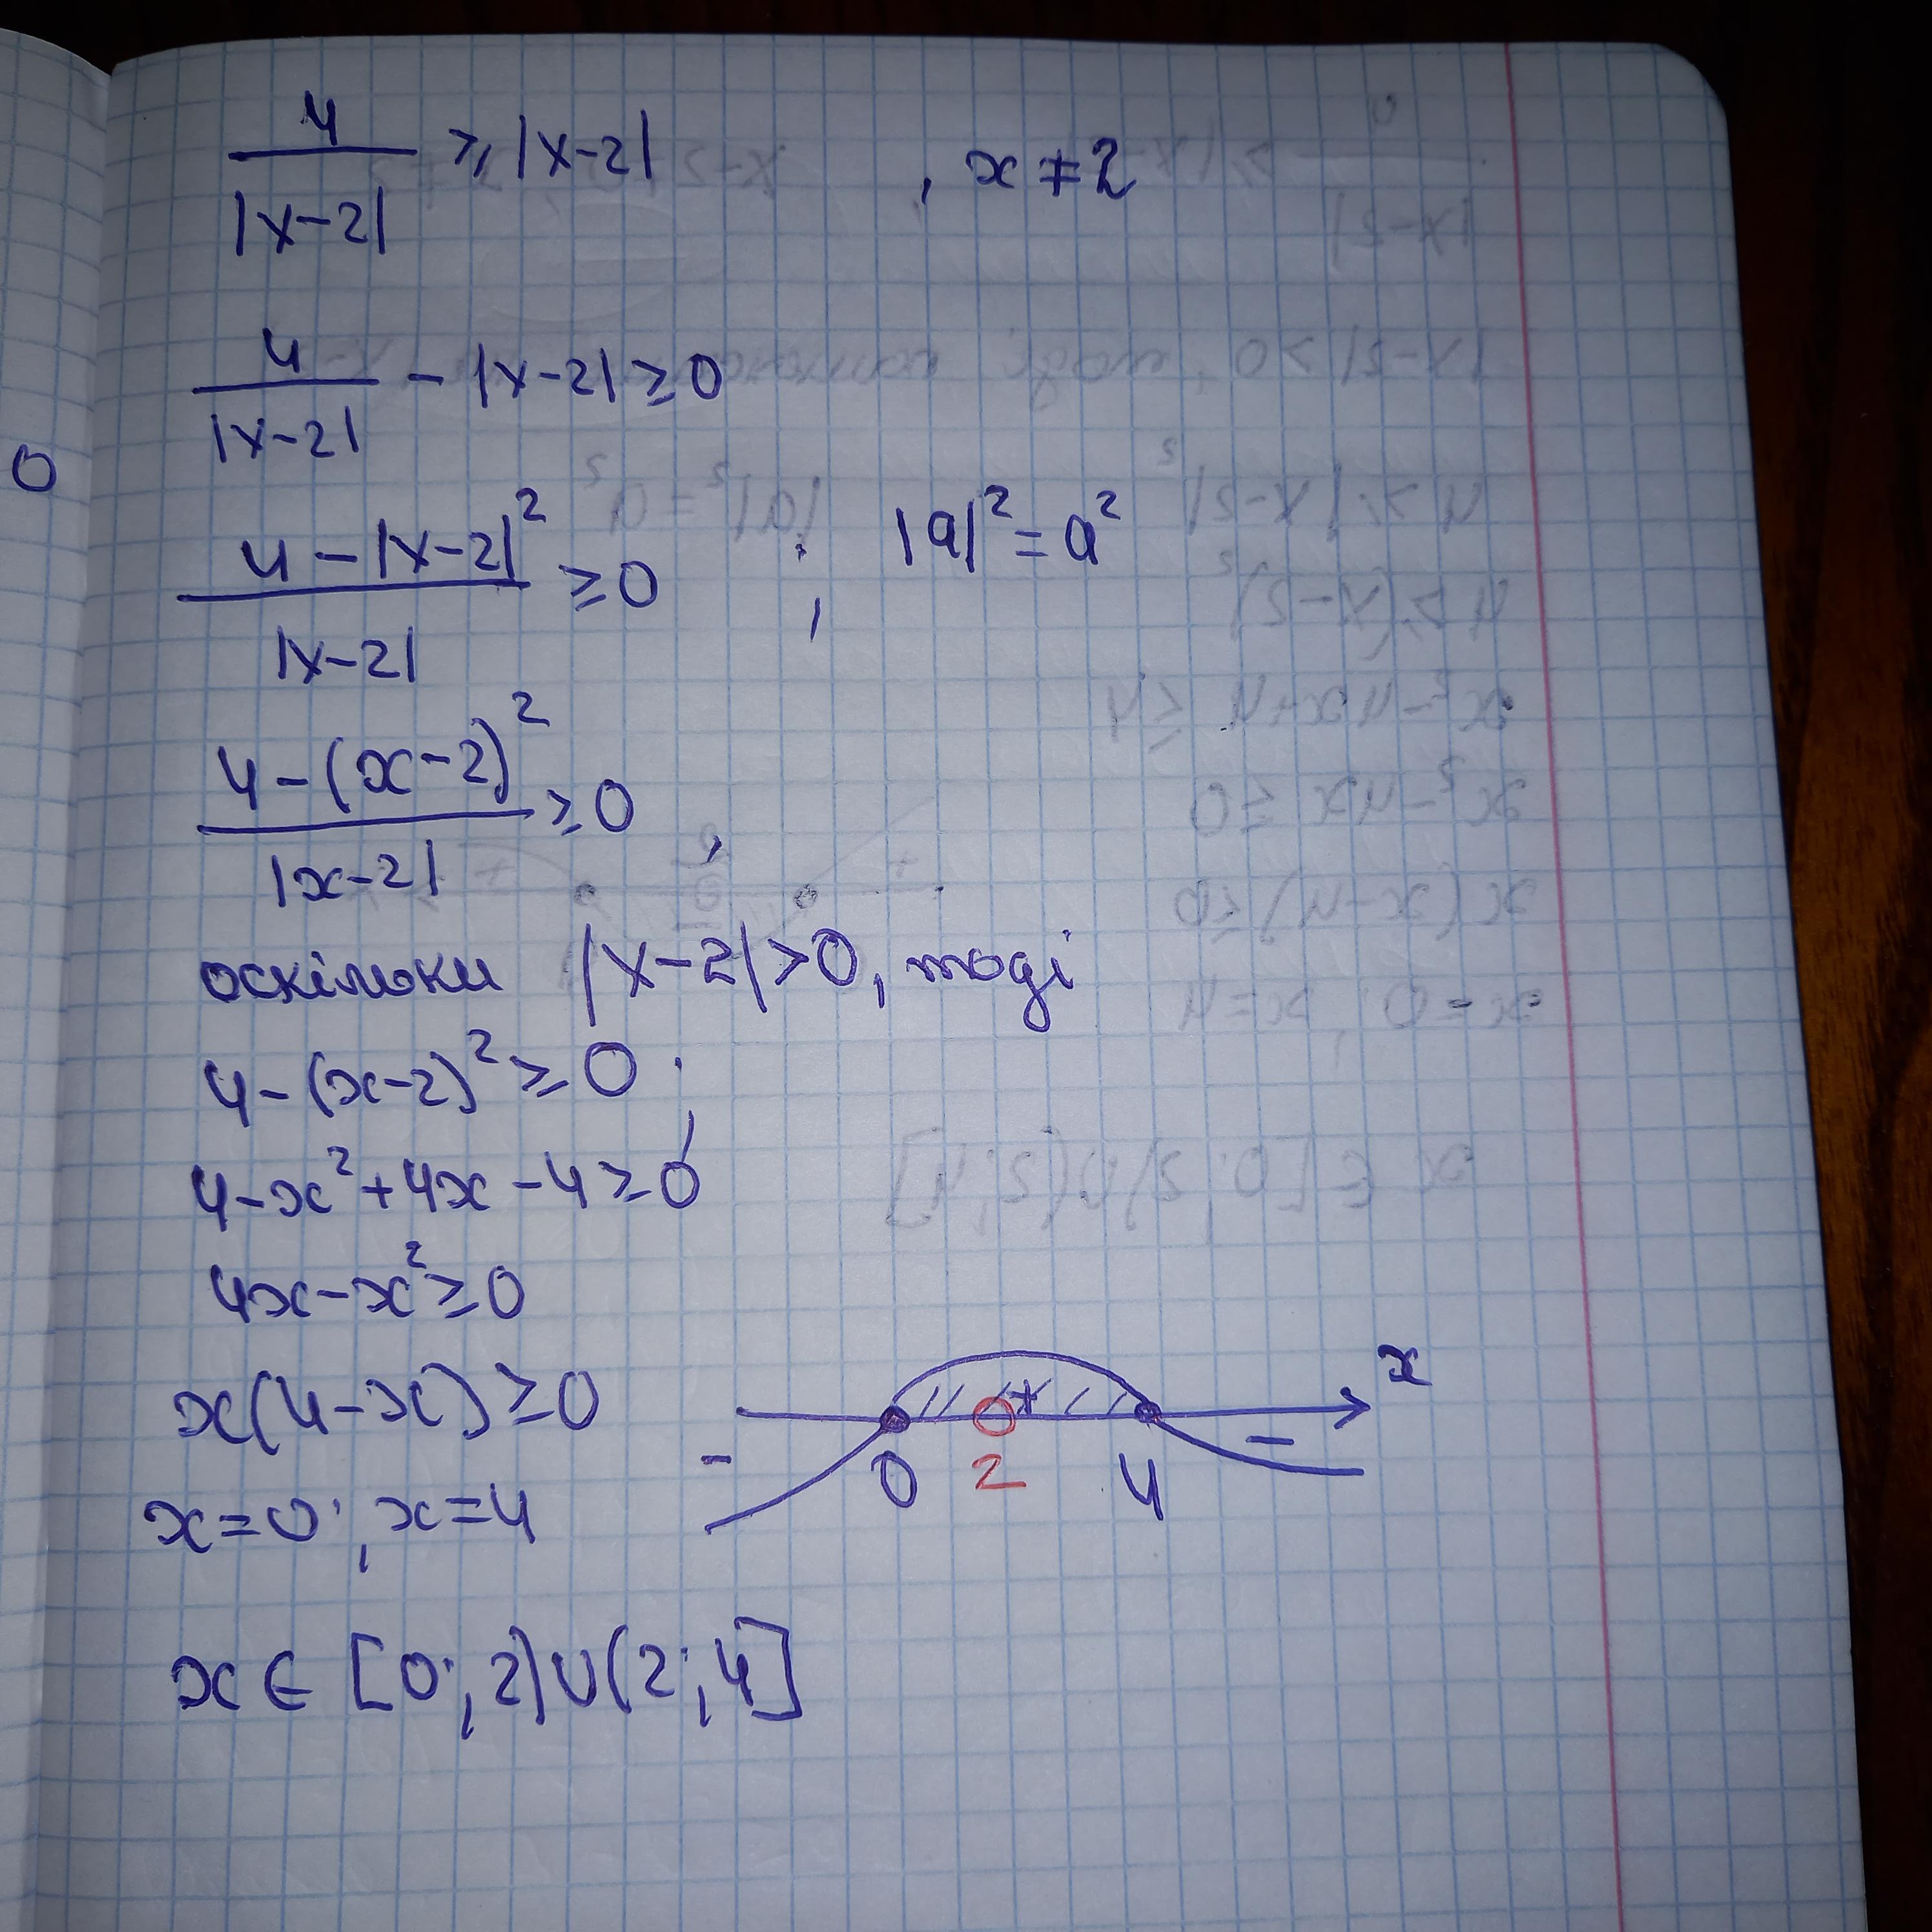 4/|x-2| ≥ |x-2| , x ≠ 2
4/|x-2| - |x-2| ≥ 0
0
(4 - |x-2|²)/|x-2| ≥ 0 ; |a|² = a²
(4 - (x-2)²)/|x-2| ≥ 0 ,
оскільки |x-2| > 0, тоді
4 - (x-2)² ≥ 0 ;
4 - x² + 4x - 4 ≥ 0
4x - x² ≥ 0
x(4 - x) ≥ 0
x = 0 ; x = 4
- + - x
0 2 4
x ∈ [0; 2) ∪ (2; 4]